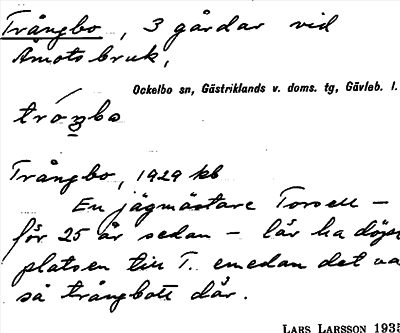 Trångbo, 3 gårdar vid
Åmots bruk,
Ockelbo sn, Gästriklands v. doms. tg, Gävleb. l.
Trångbo, 1929 kb
En jägmästare Torsell –
för 25 år sedan – lär ha döpt
platsen till T. emedan det va
så trångbott där.
LARS LARSSON 1935